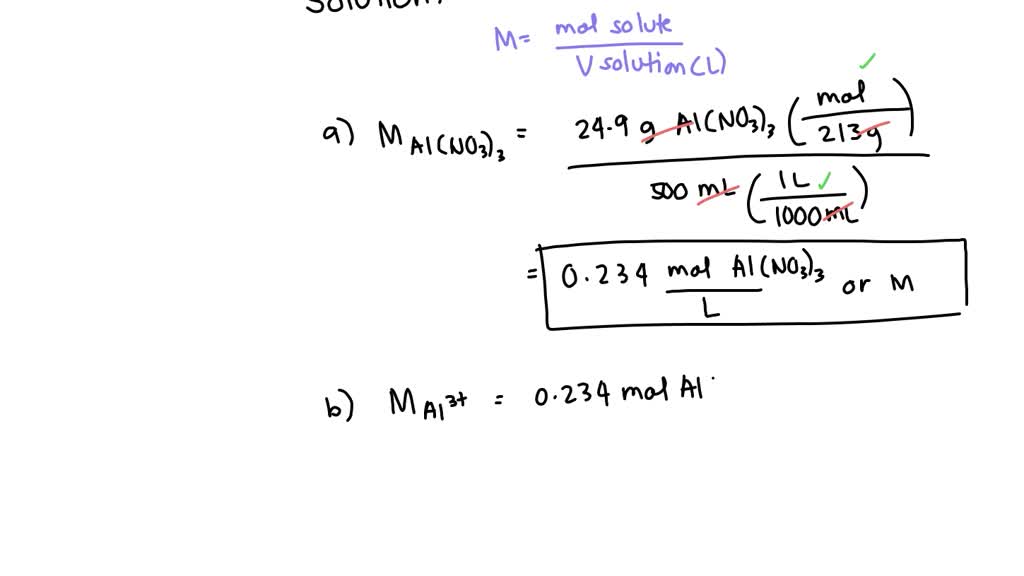 Solution:
M = mol solute / V solution (L)
a) M Al(NO3)3 = 24.9 g Al(NO3)3 (mol / 213g) ✓
500 mL (1L / 1000mL) ✓
= 0.234 mol Al(NO3)3 / L or M
b) M Al3+ = 0.234 mol Al